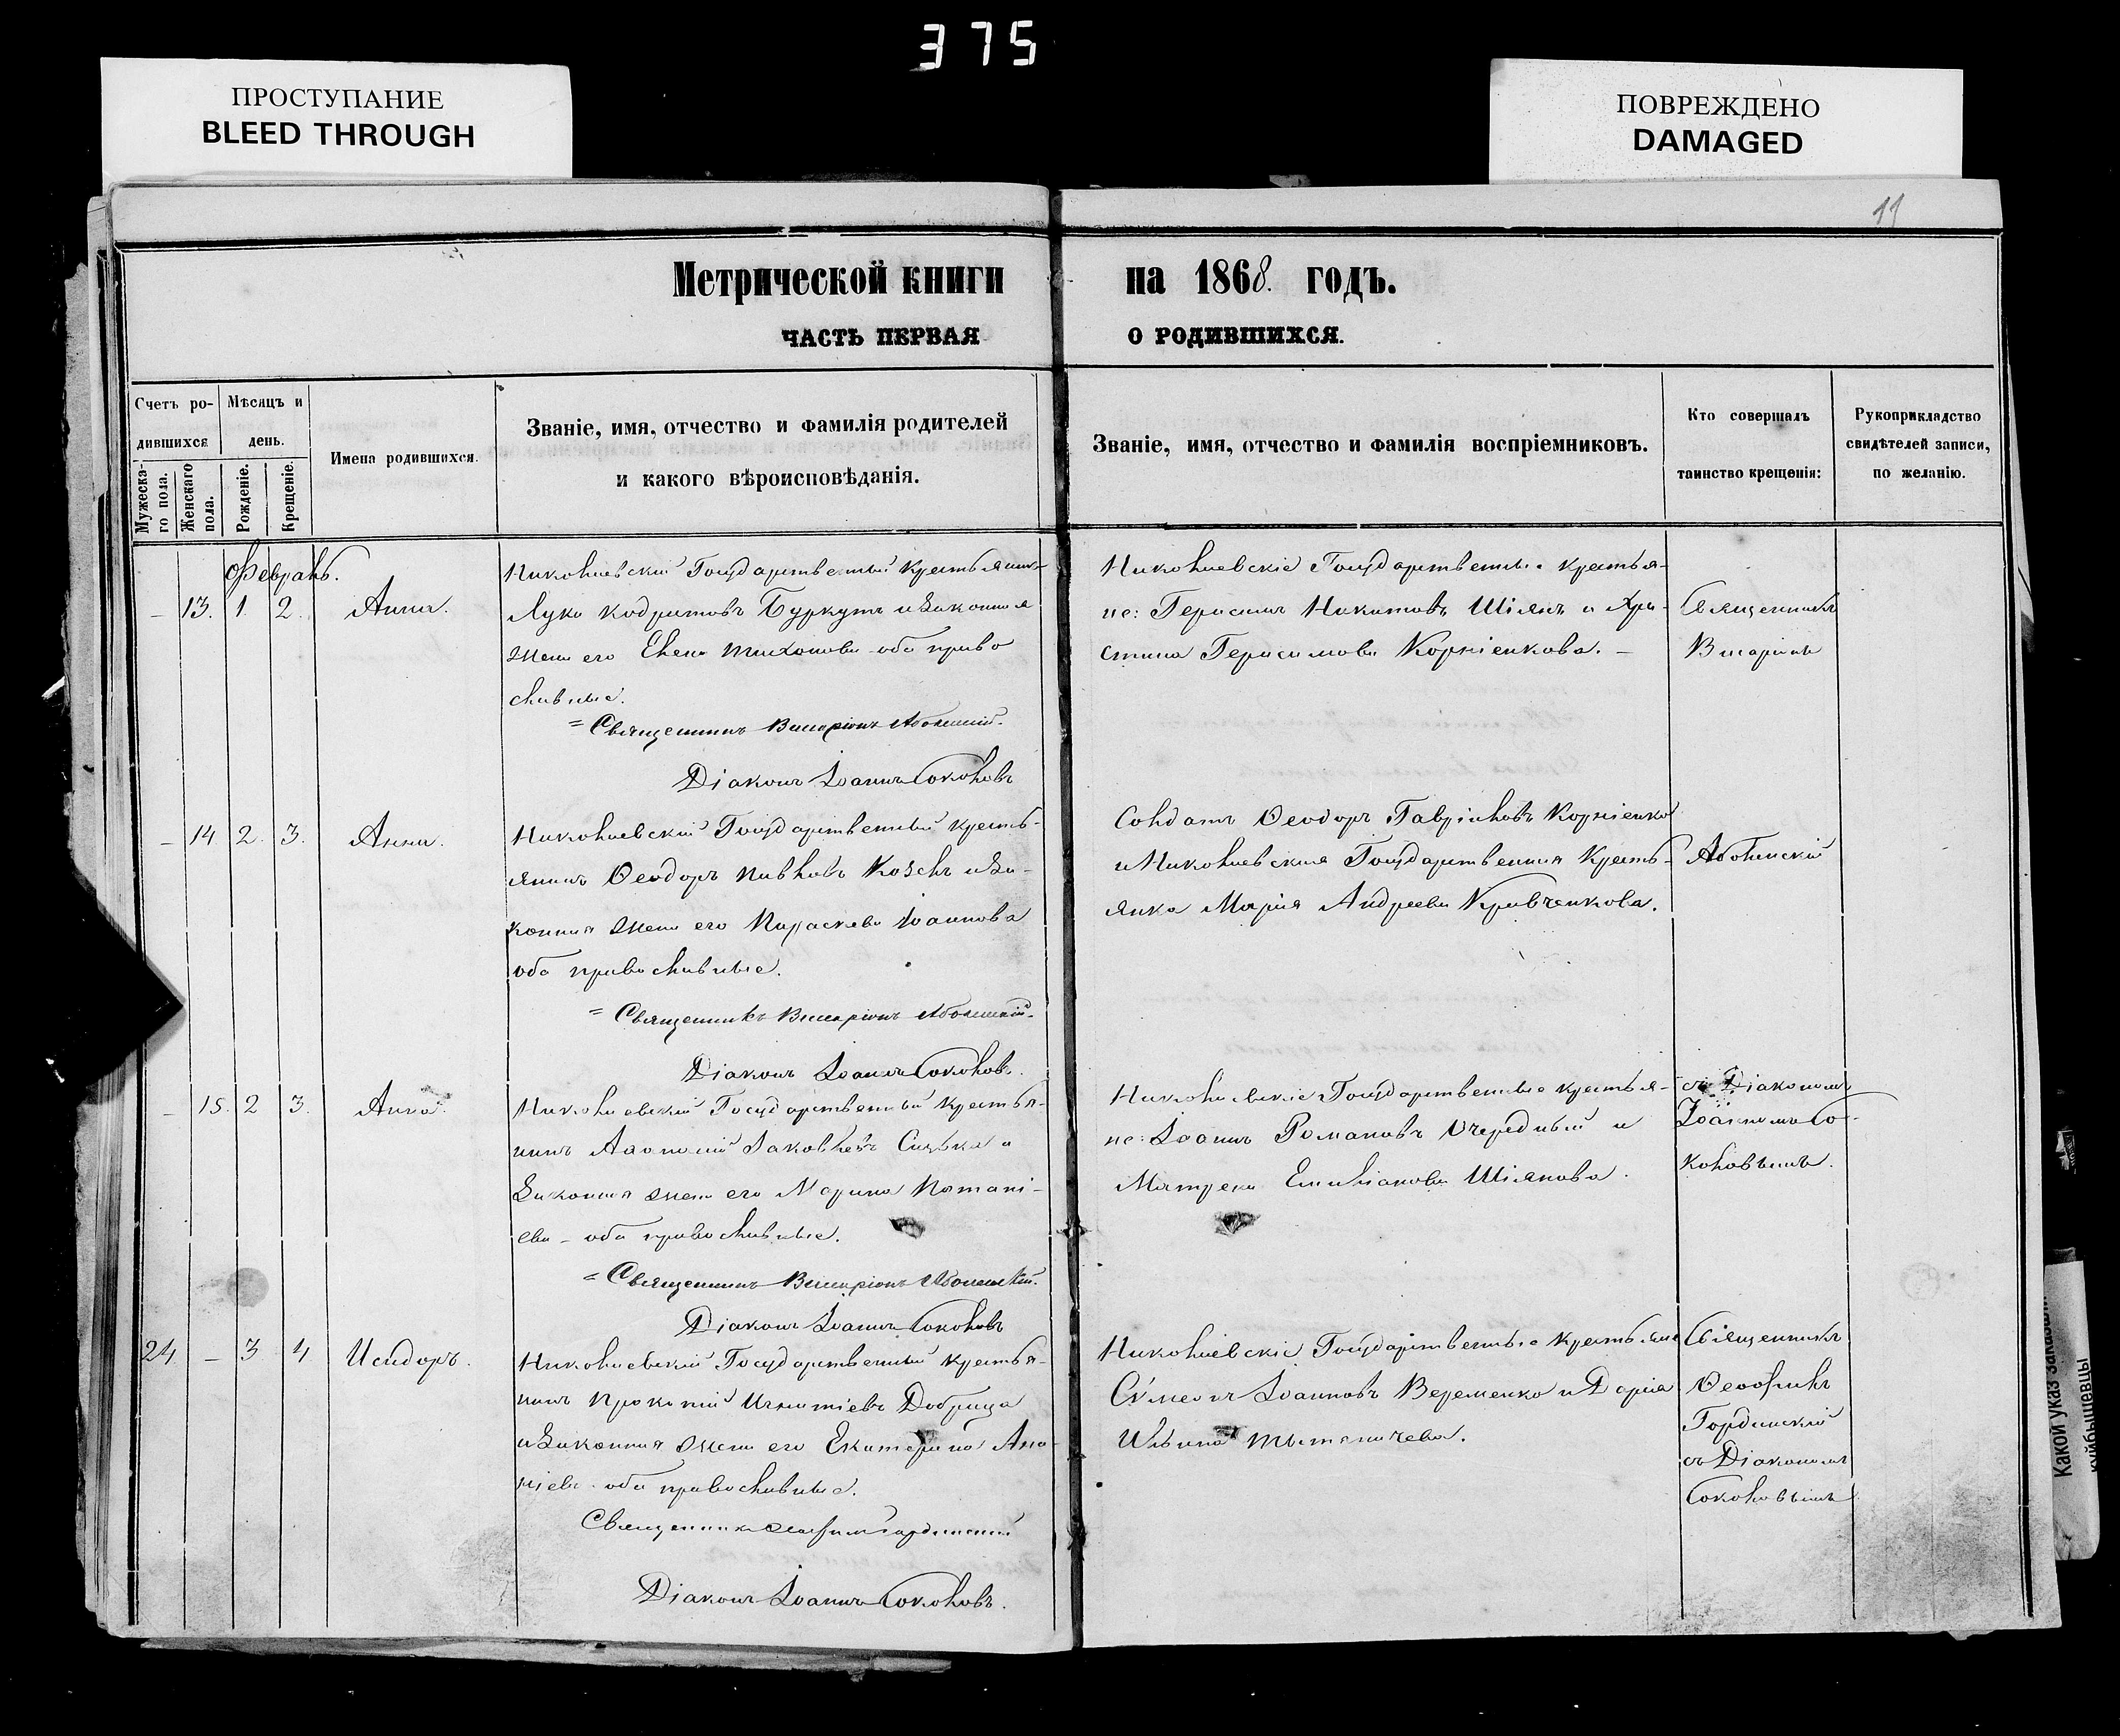 375
ПРОСТУПАНИЕ
BLEED THROUGH
ПОВРЕЖДЕНО
DAMAGED
11
Метрической книги на 1868. годъ.
ЧАСТЬ ПЕРВАЯ О РОДИВШИХСЯ.
Счетъ родившихся
Мужеска-
го пола.
Женскаго
пола.
Мѣсяцъ и
день.
Рожденіе.
Крещеніе.
Имена родившихся.
Званіе, имя, отчество и фамилія родителей
и какого вѣроисповѣданія.
Званіе, имя, отчество и фамилія воспріемниковъ.
Кто совершалъ
таинство крещенія:
Рукоприкладство
свидѣтелей записи,
по желанію.
Февраль.
– 13. 1. 2. Анна.
Николаевскій Государственный крестьянинъ
Лука Кодратовъ Буркутъ и законная
жена его Елена Тихонова оба право
славные.
= Священникъ Виссаріонъ
Діаконъ Іоаннъ Соколовъ
Николаевскіе Государственные крестья-
не: Герасимъ Никитовъ Шіянъ и Хри-
стина Герасимова Корніенкова. –
Священникъ
Висаріонъ
– 14 2. 3. Анна.
Николаевскій Государственный кресть-
янинъ Ѳеодоръ Павловъ Козелъ и за-
конная жена его Параскева Іоаннова
оба православные.
= Священникъ Виссаріонъ
Діаконъ Іоаннъ Соколовъ.
Солдатъ Ѳеодоръ Гавріиловъ Корніенко
и Николаевская Государственная кресть-
янка Марія Андреева Кравченкова.
– 15. 2 3. Анна.
Николаевскій Государственный крестья-
нинъ Іаковлевъ и
законная жена его Марина Потапі-
ева – оба православные.
= Священникъ Виссаріонъ
Діаконъ Іоаннъ Соколовъ
Николаевскіе Государственные крестья-
не: Іоаннъ Романовъ Очередный и
Матрена Емиліанова Шіянова.
съ Діакономъ
Іоанномъ Со-
коловымъ.
24 – 3 4 Исидоръ.
Николаевскій Государственный крестья-
нинъ Прокопій Игнатіевъ Добрица
и законная жена его Екатерина Ана-
ніева оба православные.
Священникъ Ѳеофилъ Гординскій
Діаконъ Іоаннъ Соколовъ.
Николаевскіе Государственные крестьяне
Сѵмеонъ Іоанновъ Веременко и Дарія
Ильина
Священникъ
Ѳеофилъ
Гординскій
съ Діакономъ
Соколовымъ
Какой указ
куйбышевцы